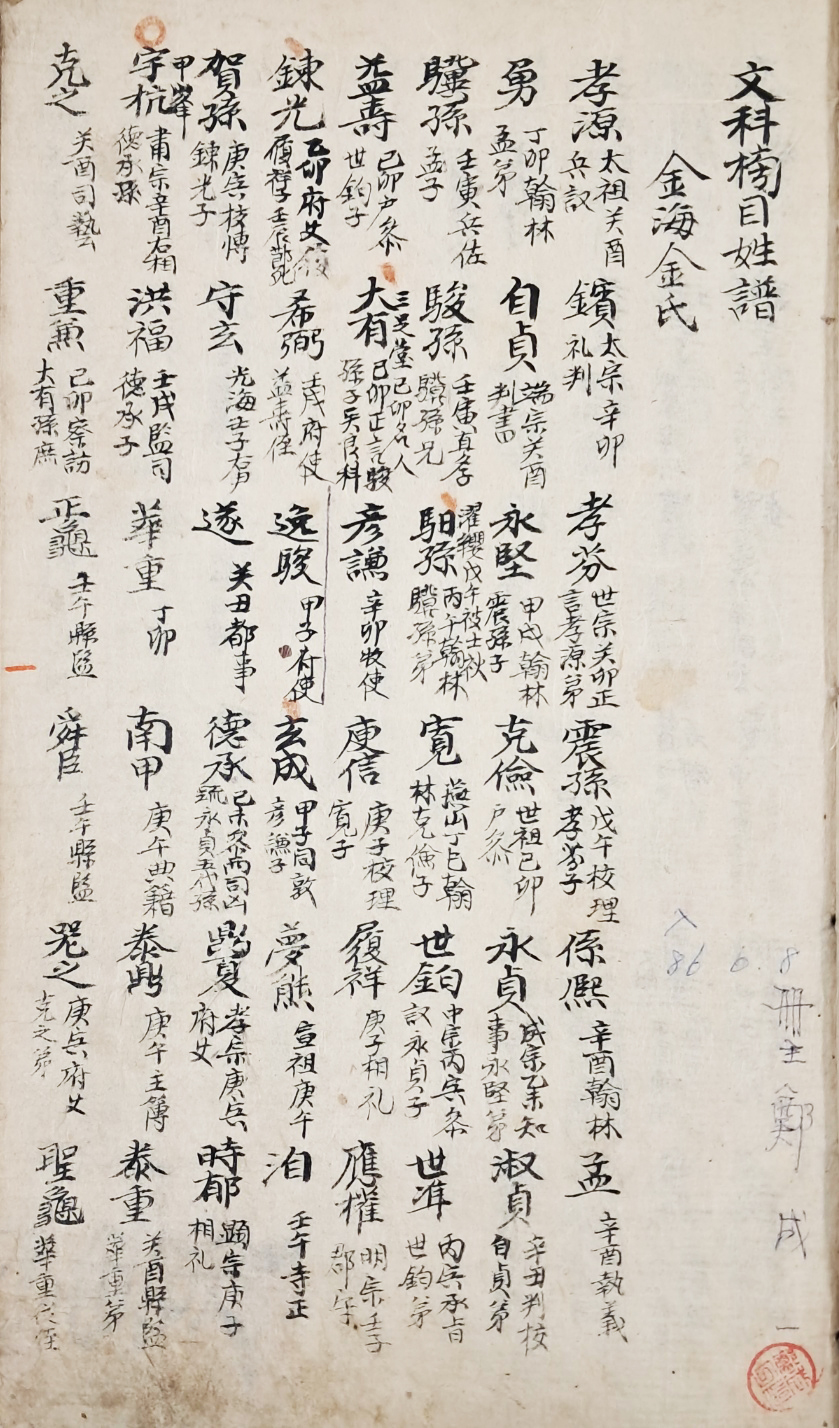 文科榜目姓譜
金海金氏
孝源 太祖癸酉 兵議 鑌 太宗辛卯 礼判 孝芬 世宗癸卯正言孝源弟 震孫 戊午校理 孝芬子 係熙 辛酉翰林 孟 辛酉執義
勇 丁卯翰林 孟弟 自貞 端宗癸酉 判書 永堅 甲戌翰林 震孫子 克儉 世祖己卯 戶叅 永貞 成宗乙未知事永堅弟 淑貞 辛丑判校 自貞弟
驥孫 壬寅兵佐 孟子 駿孫 壬寅直學 驥孫兄 馹孫 濯纓戊午被士禍 丙午翰林 驥孫弟 寬 燕山丁巳翰林克儉子 世鈞 中宗丙子叅議永貞子 世準 丙子承旨 世鈞弟
益壽 己卯戶叅 世鈞子 大有 三足堂己卯名人 己卯正言駿孫子賢良科 彥謙 辛卯牧使 庾信 庚子校理 寬子 履祥 庚子相礼 應權 明宗壬子 郡守
鍊光 乙卯府使 履祥子壬辰節死 希弼 壬戌府使 益壽侄 逸駿 甲子府使 玄成 甲子同敦 彥謙子 夢熊 宣祖庚午 泊 壬午寺正
賀孫 庚子校博 鍊光子 守玄 光海壬子 遂 癸丑都事 德承 己未 永貞五代孫 鼎夏 孝宗庚子 府使 時郁 顯宗庚子 相礼
宇杭 甲峯 肅宗辛酉右相 德承孫 洪福 壬戌監司 德承子 華重 丁卯 南甲 庚午典籍 泰鼎 庚午主簿 泰重 癸酉縣監 華重弟
克之 癸酉司藝 重兼 己卯察訪 大有孫庶 正龜 壬午縣監 舜臣 壬午縣監 器之 庚子府使 克之弟 聖龜 華重從侄
入
86 6. 8
冊主 金鄭 成
一